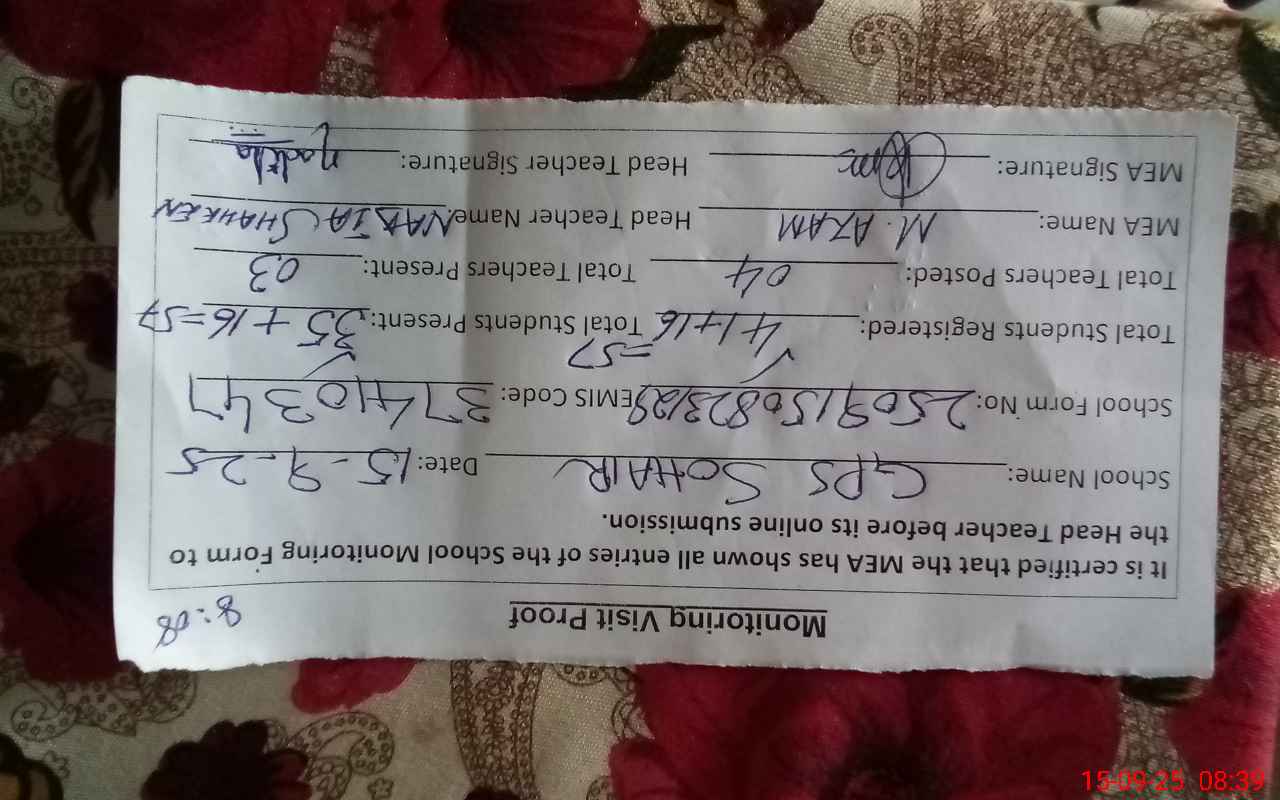 Monitoring Visit Proof 8:08
It is certified that the MEA has shown all entries of the School Monitoring Form to
the Head Teacher before its online submission.
School Name: GPS SOHAIR Date: 15-9-25
School Form No: 2509150823129 EMIS Code: 37410347
Total Students Registered: 41+16 =57 Total Students Present: 35+16=57
Total Teachers Posted: 04 Total Teachers Present: 03
MEA Name: M. AZAM Head Teacher Name NADIA SHAHEEN
MEA Signature: Head Teacher Signature: Nadia
15-09-25 08:39